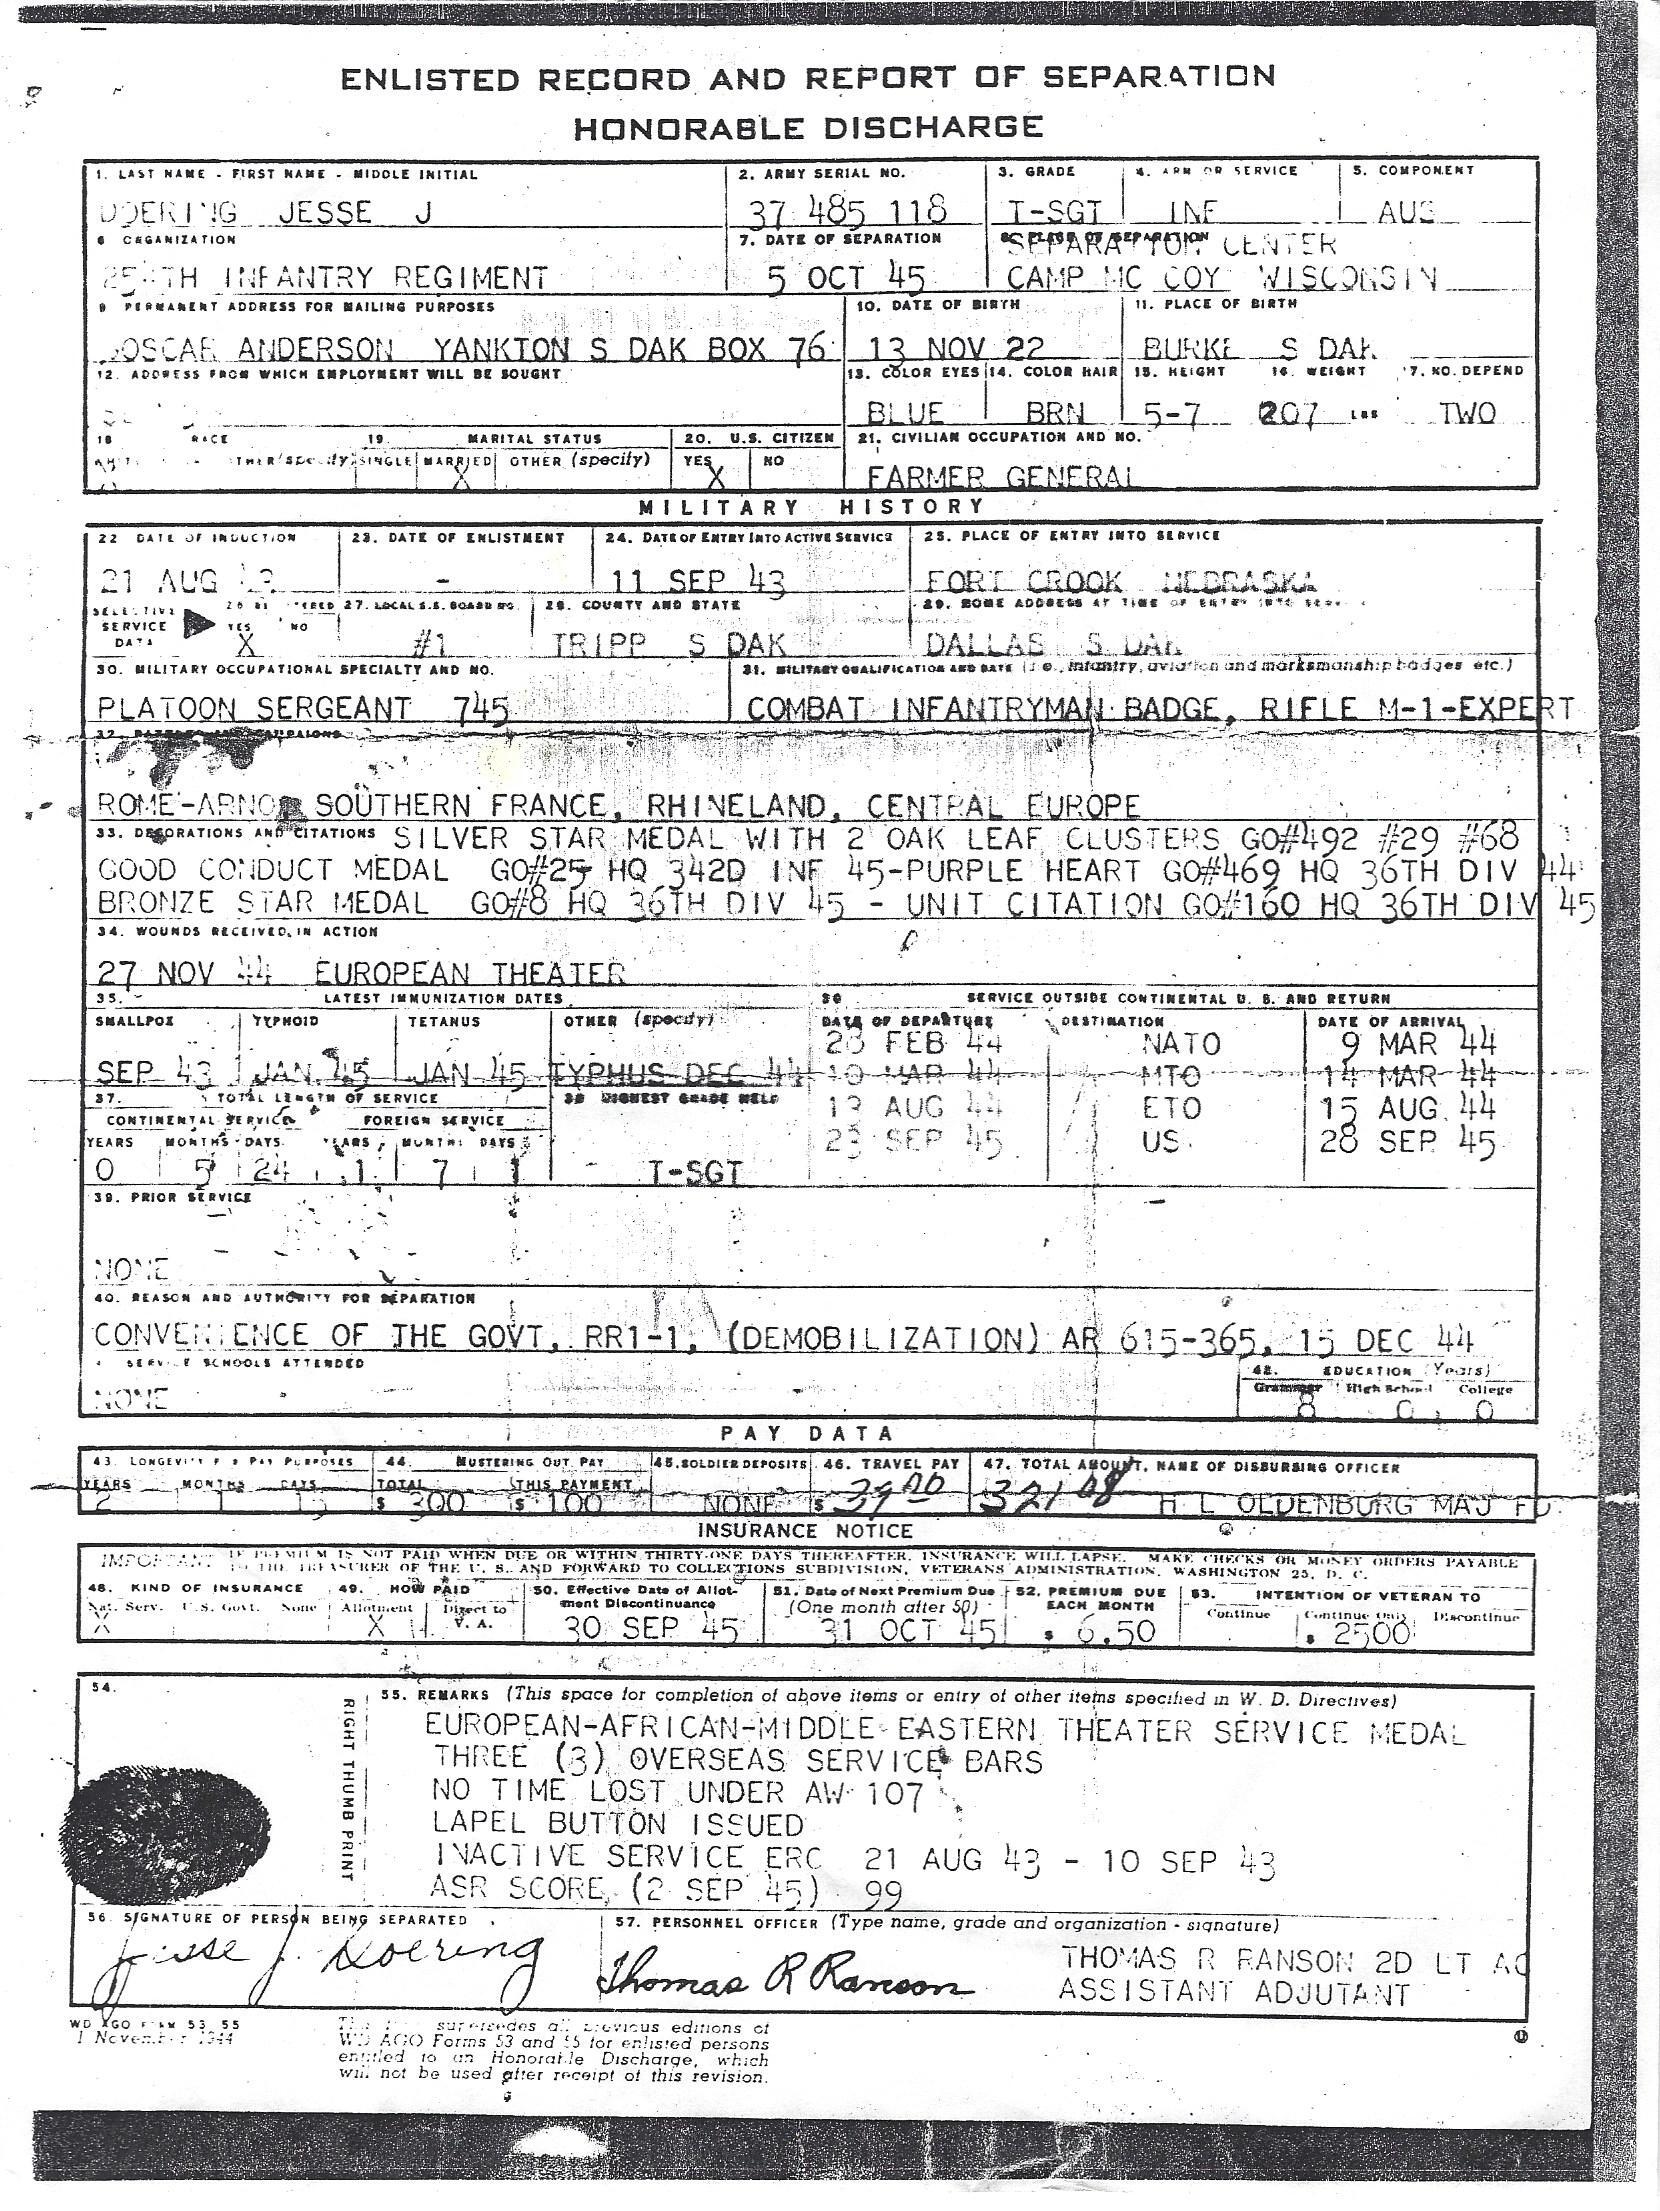 ENLISTED RECORD AND REPORT OF SEPARATION
HONORABLE DISCHARGE
1. LAST NAME - FIRST NAME - MIDDLE INITIAL
2. ARMY SERIAL NO.
3. GRADE
4. ARM OR SERVICE
5. COMPONENT
DOERING JESSE J
37 485 118
T-SGT
INF
AUS
6 ORGANIZATION
7. DATE OF SEPARATION
8. PLACE OF SEPARATION
INFANTRY REGIMENT
5 OCT 45
SEPARATION CENTER
CAMP MC COY WISCONSIN
9 PERMANENT ADDRESS FOR MAILING PURPOSES
10. DATE OF BIRTH
11. PLACE OF BIRTH
OSCAR ANDERSON YANKTON S DAK BOX 76
13 NOV 22
BURKE S DAK
12. ADDRESS FROM WHICH EMPLOYMENT WILL BE SOUGHT
13. COLOR EYES
14. COLOR HAIR
15. HEIGHT
16. WEIGHT
17. NO. DEPEND
BLUE
BRN
5-7
207 LBS
TWO
18 RACE
19. MARITAL STATUS
20. U.S. CITIZEN
21. CIVILIAN OCCUPATION AND NO.
SINGLE MARRIED OTHER (specify)
YES NO
X
X
FARMER GENERAL
MILITARY HISTORY
22 DATE OF INDUCTION
23. DATE OF ENLISTMENT
24. DATE OF ENTRY INTO ACTIVE SERVICE
25. PLACE OF ENTRY INTO SERVICE
21 AUG
-
11 SEP 43
FORT CROOK NEBRASKA
SELECTIVE SERVICE DATA
YES NO
X
27. LOCAL S.S. BOARD NO.
28. COUNTY AND STATE
29. HOME ADDRESS AT TIME OF ENTRY INTO SERVICE
#1
TRIPP S DAK
DALLAS S DAK
30. MILITARY OCCUPATIONAL SPECIALTY AND NO.
31. MILITARY QUALIFICATION AND DATE (i.e., infantry, aviation and marksmanship badges etc.)
PLATOON SERGEANT 745
COMBAT INFANTRYMAN BADGE, RIFLE M-1-EXPERT
32. BATTLES AND CAMPAIGNS
ROME-ARNO, SOUTHERN FRANCE, RHINELAND, CENTRAL EUROPE
33. DECORATIONS AND CITATIONS SILVER STAR MEDAL WITH 2 OAK LEAF CLUSTERS GO#492 #29 #68
GOOD CONDUCT MEDAL GO#25 HQ 342D INF 45-PURPLE HEART GO#469 HQ 36TH DIV 44
BRONZE STAR MEDAL GO#8 HQ 36TH DIV 45 - UNIT CITATION GO#160 HQ 36TH DIV 45
34. WOUNDS RECEIVED IN ACTION
27 NOV 44 EUROPEAN THEATER
35. LATEST IMMUNIZATION DATES
36 SERVICE OUTSIDE CONTINENTAL U. S. AND RETURN
SMALLPOX
TYPHOID
TETANUS
OTHER (specify)
DATE OF DEPARTURE
DESTINATION
DATE OF ARRIVAL
SEP 43
JAN 45
JAN 45
TYPHUS DEC 44
FEB 44 NATO 9 MAR 44
10 MAR 44 MTO 14 MAR 44
AUG 44 ETO 15 AUG 44
SEP 45 US 28 SEP 45
37. TOTAL LENGTH OF SERVICE
38 HIGHEST GRADE HELD
CONTINENTAL SERVICE
FOREIGN SERVICE
YEARS MONTHS DAYS YEARS MONTHS DAYS
0 5 24 1 7 1
T-SGT
39. PRIOR SERVICE
NONE
40. REASON AND AUTHORITY FOR SEPARATION
CONVENIENCE OF THE GOVT. RR1-1, (DEMOBILIZATION) AR 615-365, 15 DEC 44
SERVICE SCHOOLS ATTENDED
42. EDUCATION (Years)
Grammar High School College
NONE
8 0 0
PAY DATA
43. LONGEVITY FOR PAY PURPOSES
44. MUSTERING OUT PAY
45. SOLDIER DEPOSITS
46. TRAVEL PAY
47. TOTAL AMOUNT, NAME OF DISBURSING OFFICER
YEARS MONTHS DAYS
TOTAL
THIS PAYMENT
2 1 15
$ 300
$ 100
NONE
$ 39 00
321 08
H L OLDENBURG MAJ FD
INSURANCE NOTICE
IMPORTANT IF PREMIUM IS NOT PAID WHEN DUE OR WITHIN THIRTY-ONE DAYS THEREAFTER, INSURANCE WILL LAPSE. MAKE CHECKS OR MONEY ORDERS PAYABLE
TO THE TREASURER OF THE U. S. AND FORWARD TO COLLECTIONS SUBDIVISION, VETERANS ADMINISTRATION, WASHINGTON 25, D. C.
48. KIND OF INSURANCE
49. HOW PAID
50. Effective Date of Allotment Discontinuance
51. Date of Next Premium Due (One month after 50)
52. PREMIUM DUE EACH MONTH
53. INTENTION OF VETERAN TO
Nat. Serv. U.S. Govt. None
Allotment Direct to V. A.
Continue Continue Only Discontinue
X
X
30 SEP 45
31 OCT 45
$ 6.50
$ 2500
54.
RIGHT THUMB PRINT
55. REMARKS (This space for completion of above items or entry of other items specified in W. D. Directives)
EUROPEAN-AFRICAN-MIDDLE EASTERN THEATER SERVICE MEDAL
THREE (3) OVERSEAS SERVICE BARS
NO TIME LOST UNDER AW 107
LAPEL BUTTON ISSUED
INACTIVE SERVICE ERC 21 AUG 43 - 10 SEP 43
ASR SCORE (2 SEP 45) 99
56. SIGNATURE OF PERSON BEING SEPARATED
57. PERSONNEL OFFICER (Type name, grade and organization - signature)
Jesse J. Doering
Thomas R Ranson
THOMAS R RANSON 2D LT AC
ASSISTANT ADJUTANT
WD AGO FORM 53 55
1 November 1944
This form supersedes all previous editions of
WD AGO Forms 53 and 55 for enlisted persons
entitled to an Honorable Discharge, which
will not be used after receipt of this revision.